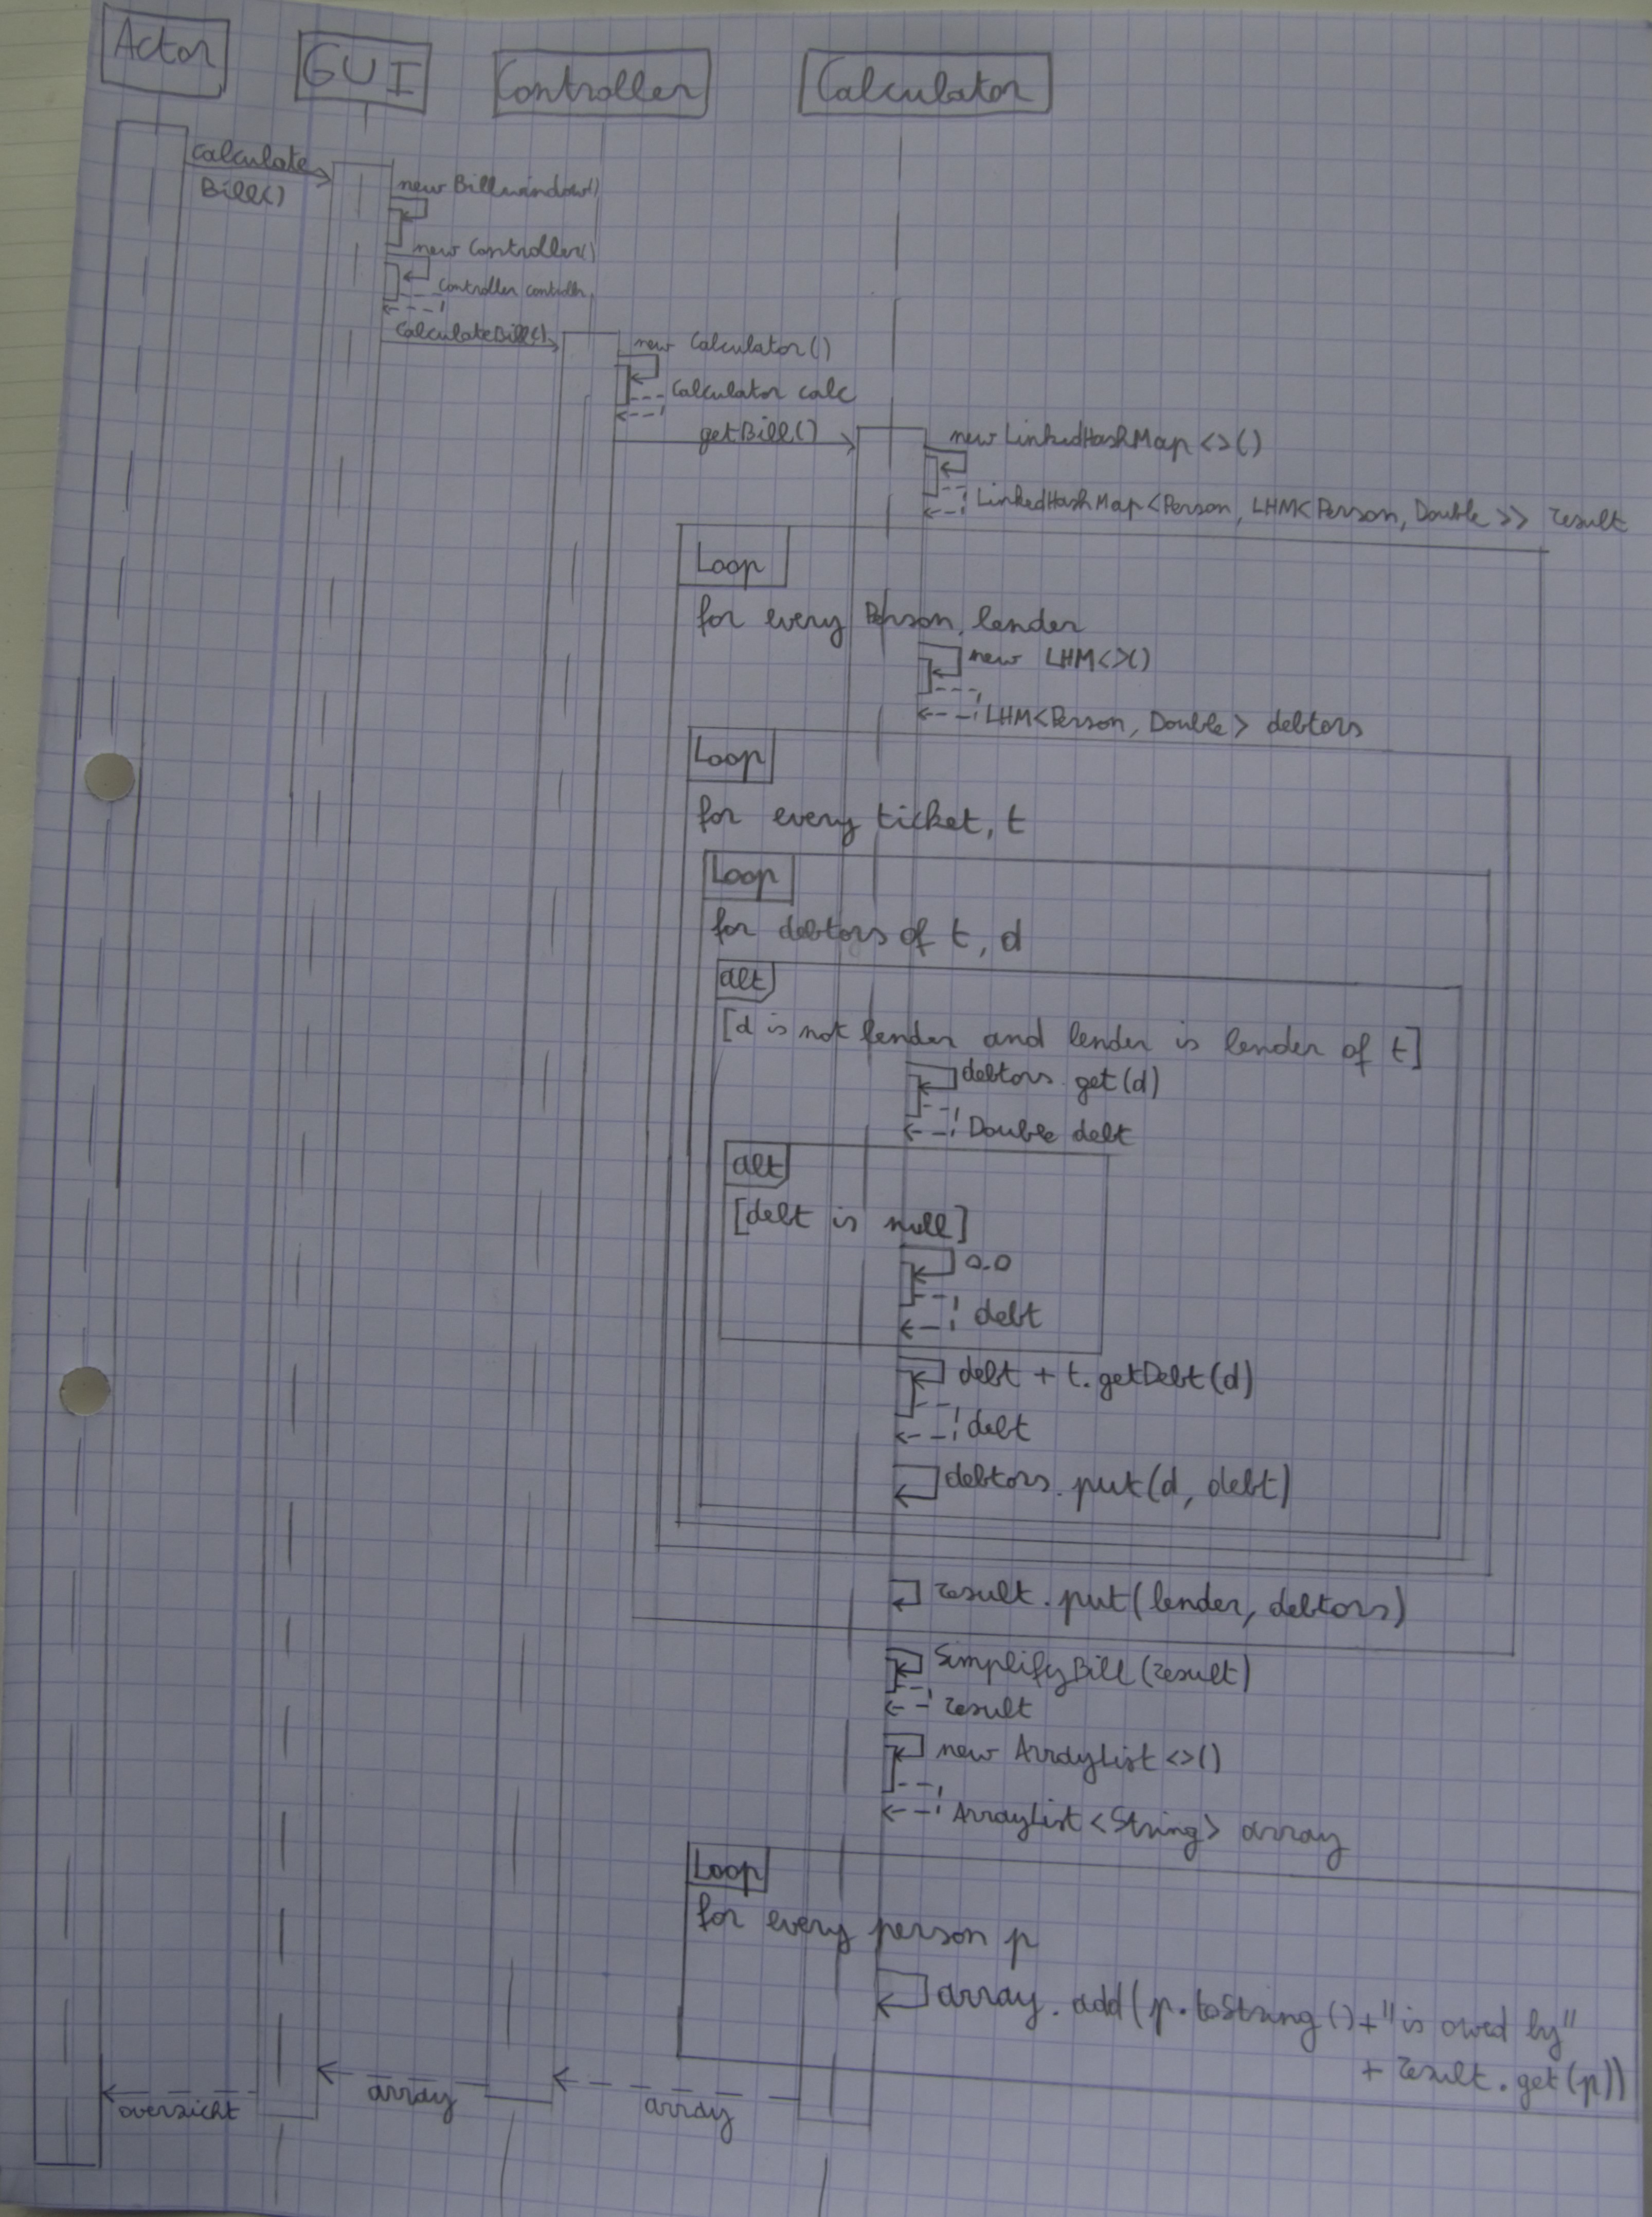 Actor
GUI
Controller
Calculator
calculate
Bill()
new Billwindow()
new Controller()
Controller
CalculateBill()
new Calculator()
Calculator calc
getBill()
new LinkedHashMap<>()
LinkedHashMap<Person, LHM<Person, Double>> result
Loop
for every Person, lender
new LHM<>()
LHM<Person, Double> debtors
Loop
for every ticket, t
Loop
for debtors of t, d
alt
[d is not lender and lender is lender of t]
debtors.get(d)
Double debt
alt
[debt is null]
0.0
debt
debt + t.getDebt(d)
debt
debtors.put(d, debt)
result.put(lender, debtors)
SimplifyBill(result)
result
new ArrayList<>()
ArrayList<String> array
Loop
for every person p
array.add(p.toString()+"is owed by"
+ result.get(p))
overzicht
array
array